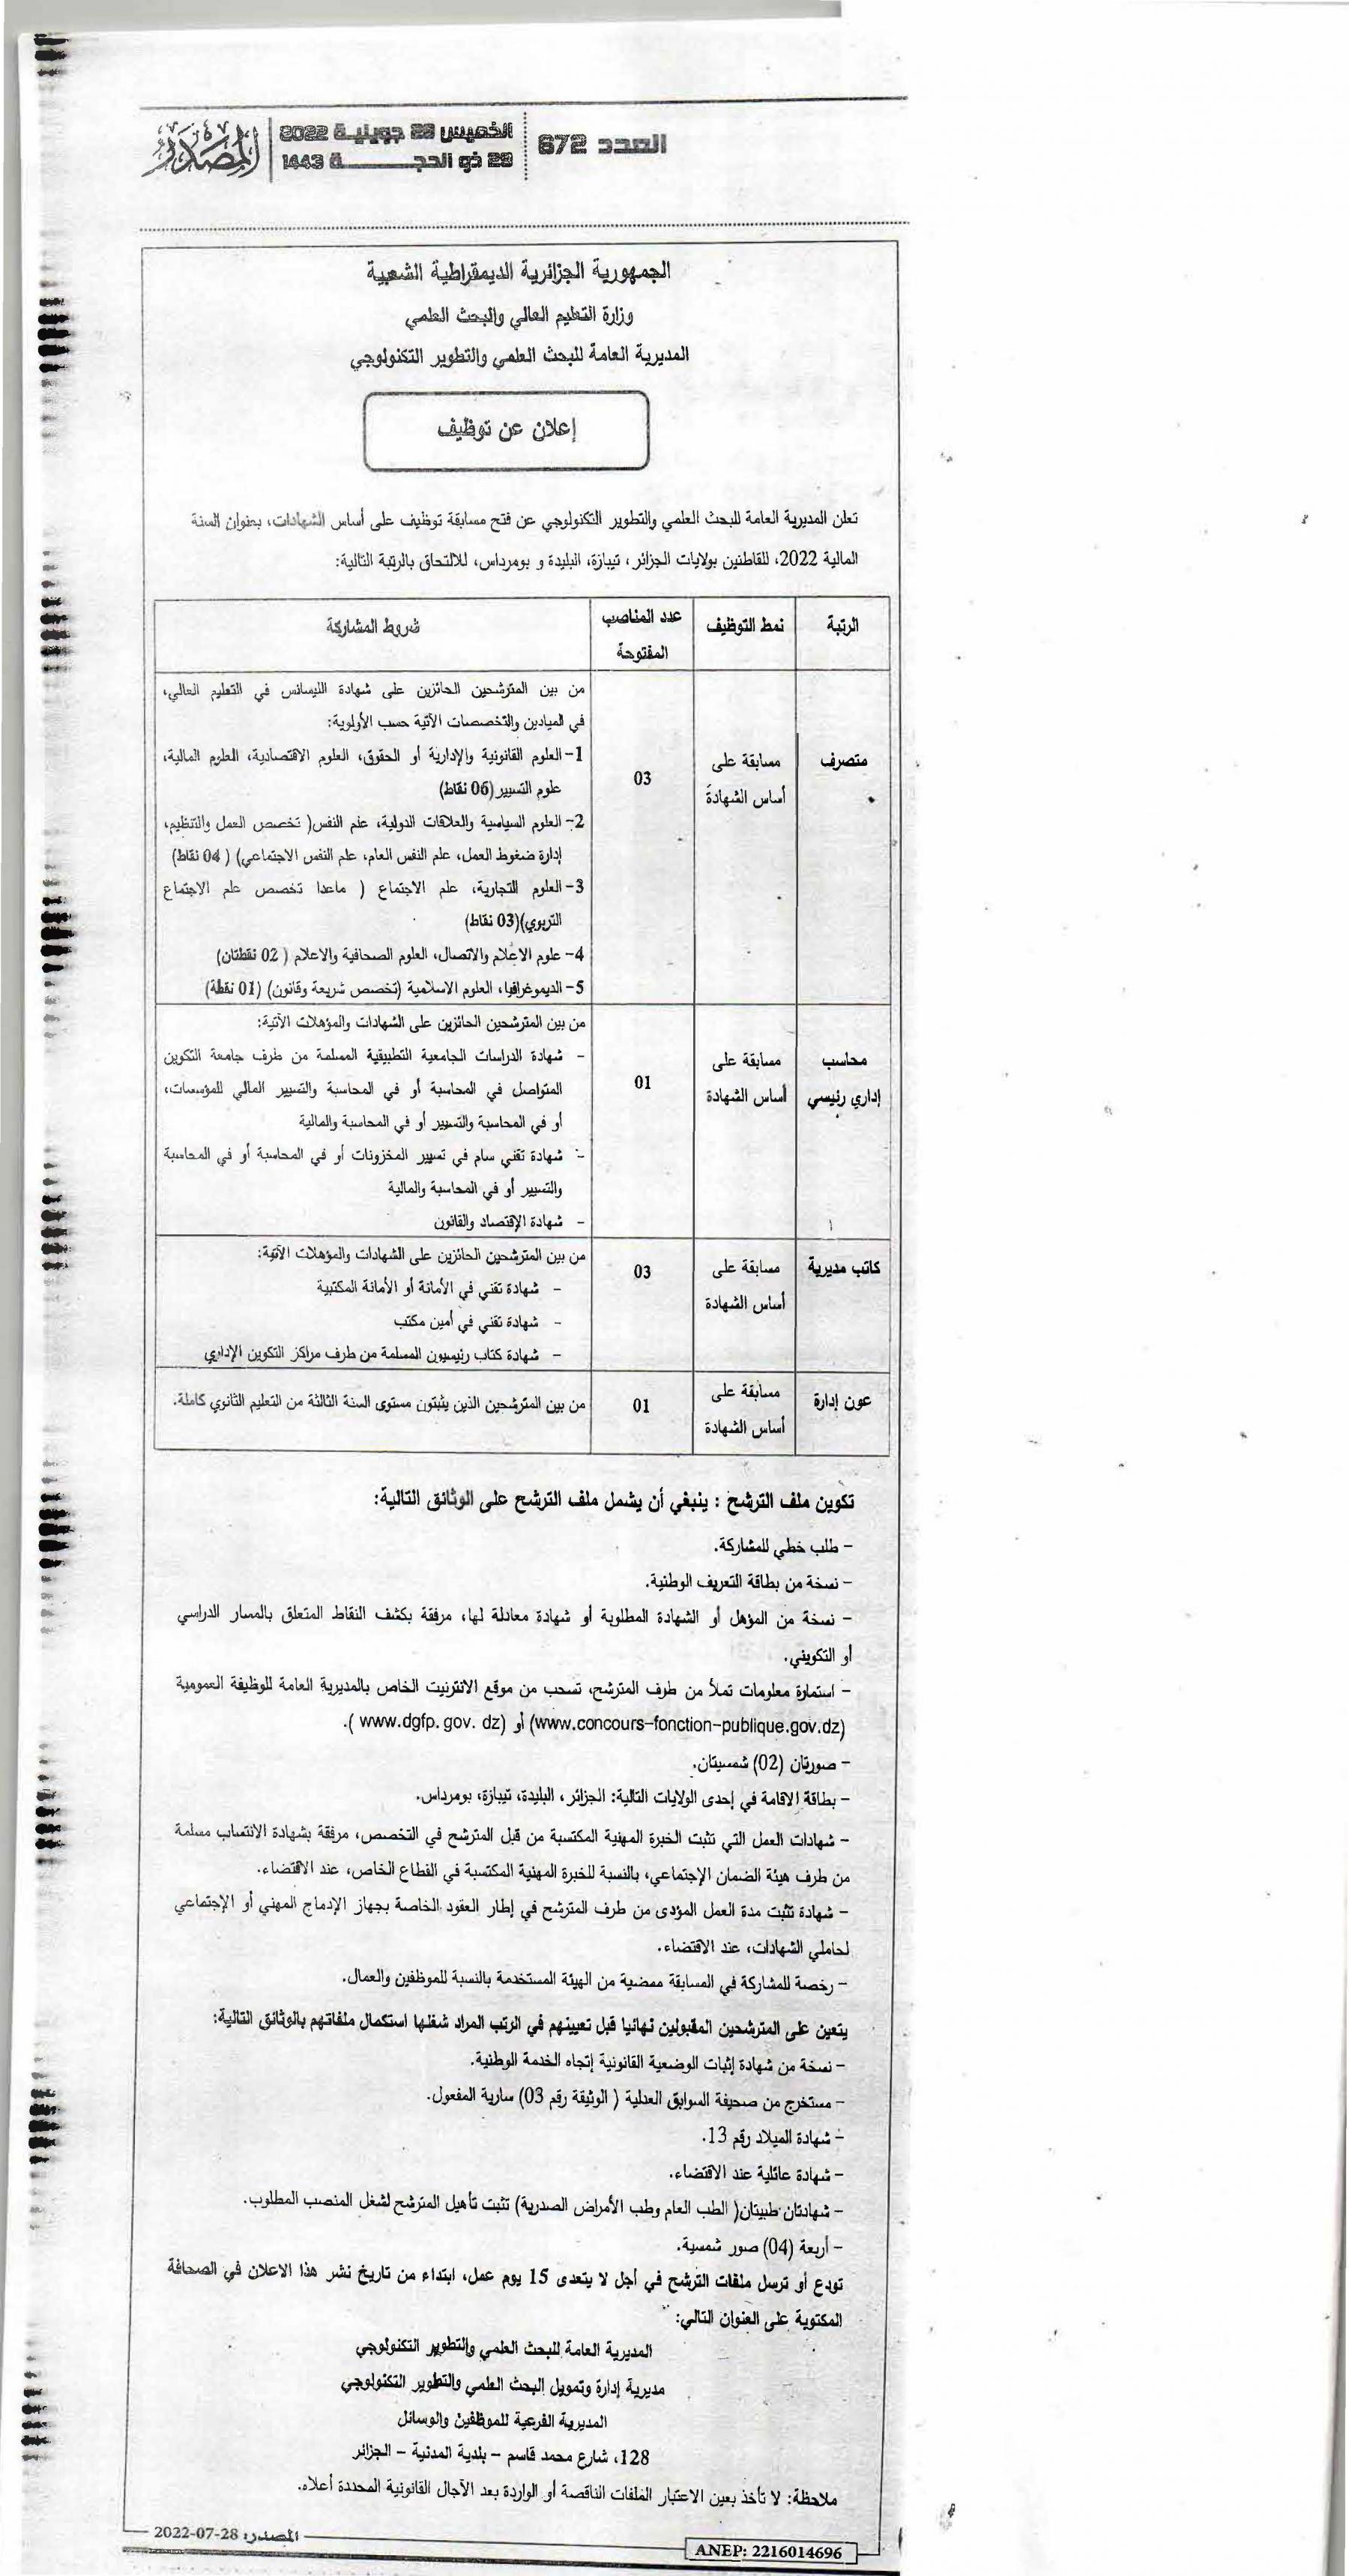 العدد 672
الخميس 28 جويلية 2022
28 ذو الحجــــــــة 1443
المصدر
الجمهورية الجزائرية الديمقراطية الشعبية
وزارة التعليم العالي والبحث العلمي
المديرية العامة للبحث العلمي والتطوير التكنولوجي
إعلان عن توظيف
تعلن المديرية العامة للبحث العلمي والتطوير التكنولوجي عن فتح مسابقة توظيف على أساس الشهادات، بعنوان السنة
المالية 2022، للقاطنين بولايات الجزائر، تيبازة، البليدة و بومرداس، للالتحاق بالرتبة التالية:
الرتبة
نمط التوظيف
عدد المناصب
المفتوحة
شروط المشاركة
متصرف
مسابقة على
أساس الشهادة
03
من بين المترشحين الحائزين على شهادة الليسانس في التعليم العالي،
في الميادين والتخصصات الآتية حسب الأولوية:
1- العلوم القانونية والإدارية أو الحقوق، العلوم الاقتصادية، العلوم المالية،
علوم التسيير (06 نقاط)
2- العلوم السياسية والعلاقات الدولية، علم النفس( تخصص العمل والتنظيم،
إدارة ضغوط العمل، علم النفس العام، علم النفس الاجتماعي) ( 04 نقاط)
3- العلوم التجارية، علم الاجتماع ( ماعدا تخصص علم الاجتماع
التربوي)(03 نقاط)
4- علوم الإعلام والاتصال، العلوم الصحافية والاعلام ( 02 نقطتان)
5- الديموغرافيا، العلوم الاسلامية (تخصص شريعة وقانون) (01 نقطة)
محاسب
إداري رئيسي
مسابقة على
أساس الشهادة
01
من بين المترشحين الحائزين على الشهادات والمؤهلات الآتية:
- شهادة الدراسات الجامعية التطبيقية المسلمة من طرف جامعة التكوين
المتواصل في المحاسبة أو في المحاسبة والتسيير المالي للمؤسسات،
أو في المحاسبة والتسيير أو في المحاسبة والمالية
- شهادة تقني سام في تسيير المخزونات أو في المحاسبة أو في المحاسبة
والتسيير أو في المحاسبة والمالية
- شهادة الإقتصاد والقانون
كاتب مديرية
مسابقة على
أساس الشهادة
03
من بين المترشحين الحائزين على الشهادات والمؤهلات الآتية:
- شهادة تقني في الأمانة أو الأمانة المكتبية
- شهادة تقني في أمين مكتب
- شهادة كتاب رئيسيون المسلمة من طرف مراكز التكوين الإداري
عون إدارة
مسابقة على
أساس الشهادة
01
من بين المترشحين الذين يثبتون مستوى السنة الثالثة من التعليم الثانوي كاملة.
تكوين ملف الترشح : ينبغي أن يشمل ملف الترشح على الوثائق التالية:
- طلب خطي للمشاركة.
- نسخة من بطاقة التعريف الوطنية.
- نسخة من المؤهل أو الشهادة المطلوبة أو شهادة معادلة لها، مرفقة بكشف النقاط المتعلق بالمسار الدراسي
أو التكويني.
- استمارة معلومات تملأ من طرف المترشح، تسحب من موقع الانترنيت الخاص بالمديرية العامة للوظيفة العمومية
(www.concours-fonction-publique.gov.dz) أو (www.dgfp. gov. dz ).
- صورتان (02) شمسيتان.
- بطاقة الاقامة في إحدى الولايات التالية: الجزائر، البليدة، تيبازة، بومرداس.
- شهادات العمل التي تثبت الخبرة المهنية المكتسبة من قبل المترشح في التخصص، مرفقة بشهادة الانتساب مسلمة
من طرف هيئة الضمان الإجتماعي، بالنسبة للخبرة المهنية المكتسبة في القطاع الخاص، عند الاقتضاء.
- شهادة تثبت مدة العمل المؤدى من طرف المترشح في إطار العقود الخاصة بجهاز الإدماج المهني أو الإجتماعي
لحاملي الشهادات، عند الاقتضاء.
- رخصة للمشاركة في المسابقة ممضية من الهيئة المستخدمة بالنسبة للموظفين والعمال.
يتعين على المترشحين المقبولين نهائيا قبل تعيينهم في الرتب المراد شغلها استكمال ملفاتهم بالوثائق التالية:
- نسخة من شهادة إثبات الوضعية القانونية إتجاه الخدمة الوطنية.
- مستخرج من صحيفة السوابق العدلية ( الوثيقة رقم 03) سارية المفعول.
- شهادة الميلاد رقم 13.
- شهادة عائلية عند الاقتضاء.
- شهادتان طبيتان( الطب العام وطب الأمراض الصدرية) تثبت تأهيل المترشح لشغل المنصب المطلوب.
- أربعة (04) صور شمسية.
تودع أو ترسل ملفات الترشح في أجل لا يتعدى 15 يوم عمل، ابتداء من تاريخ نشر هذا الاعلان في الصحافة
المكتوبة على العنوان التالي:
المديرية العامة للبحث العلمي والتطوير التكنولوجي
مديرية إدارة وتمويل البحث العلمي والتطوير التكنولوجي
المديرية الفرعية للموظفين والوسائل
128، شارع محمد قاسم - بلدية المدنية - الجزائر
ملاحظة: لا تأخذ بعين الاعتبار الملفات الناقصة أو الواردة بعد الآجال القانونية المحددة أعلاه.
المصدر: 28-07-2022
ANEP: 2216014696